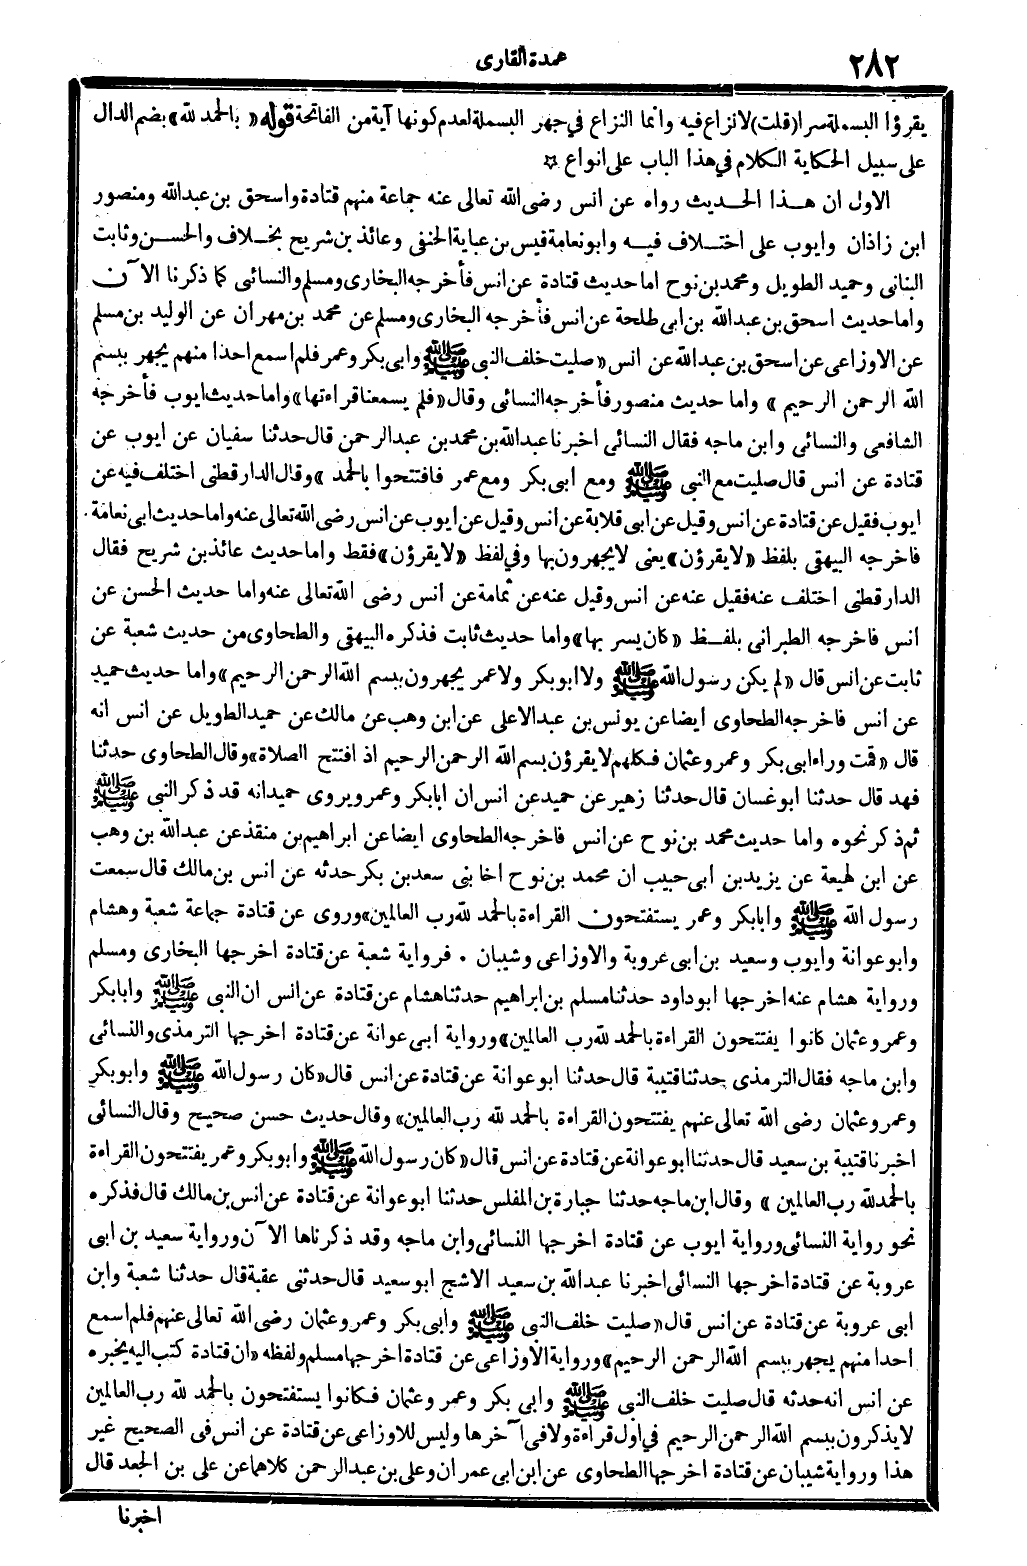 ٢٨٢
عمدة القارى
يقرؤا البسملة سرا (قلت) لانزاع فيه وانما النزاع في جهر البسملة لعدم كونها آية من الفاتحة قوله « بالحمد لله » بضم الدال
على سبيل الحكاية الكلام في هذا الباب على انواع ☆
الاول ان هذا الحديث رواه عن انس رضى الله تعالى عنه جماعة منهم قتادة واسحق بن عبدالله ومنصور
ابن زاذان وايوب على اختلاف فيه وابو نعامة قيس بن عباية الحنفى وعائذ بن شريح بخلاف والحسن وثابت
البنانى وحميد الطويل ومحمد بن نوح اما حديث قتادة عن انس فأخرجه البخارى ومسلم والنسائى كما ذكرنا الآن
واما حديث اسحق بن عبدالله بن ابى طلحة عن انس فأخرجه البخارى ومسلم عن محمد بن مهران عن الوليد بن مسلم
عن الاوزاعى عن اسحق بن عبدالله عن انس « صليت خلف النبى ﷺ وابى بكر وعمر فلم اسمع احدا منهم يجهر ببسم
الله الرحمن الرحيم » واما حديث منصور فأخرجه النسائى وقال « فلم يسمعنا قراءتها » واما حديث ايوب فأخرجه
الشافعى والنسائى وابن ماجه فقال النسائى اخبرنا عبدالله بن محمد بن عبد الرحمن قال حدثنا سفيان عن ايوب عن
قتادة عن انس قال صليت مع النبى ﷺ ومع ابى بكر ومع عمر فافتتحوا بالحمد » وقال الدارقطنى اختلف فيه عن
ايوب فقيل عن قتادة عن انس وقيل عن ابى قلابة عن انس وقيل عن ايوب عن انس رضى الله تعالى عنه واما حديث ابى نعامة
فاخرجه البيهقى بلفظ « لا يقرؤن » يعنى لا يجهرون بها وفي لفظ « لا يقرؤن » فقط واما حديث عائذ بن شريح فقال
الدارقطنى اختلف عنه فقيل عنه عن انس وقيل عنه عن ثمامة عن انس رضى الله تعالى عنه واما حديث الحسن عن
انس فاخرجه الطبرانى بلفظ « كان يسر بها » واما حديث ثابت فذكره البيهقى والطحاوى من حديث شعبة عن
ثابت عن انس قال « لم يكن رسول الله ﷺ ولا ابو بكر ولا عمر يجهرون ببسم الله الرحمن الرحيم » واما حديث حميد
عن انس فاخرجه الطحاوى ايضا عن يونس بن عبد الاعلى عن ابن وهب عن مالك عن حميد الطويل عن انس انه
قال « قمت وراء ابى بكر وعمر وعثمان فكلهم لا يقرؤن بسم الله الرحمن الرحيم اذ افتتح الصلاة » وقال الطحاوى حدثنا
فهد قال حدثنا ابو غسان قال حدثنا زهير عن حميد عن انس ان ابابكر وعمر ويروى حميد انه قد ذكر النبى ﷺ
ثم ذكر نحوه واما حديث محمد بن نوح عن انس فاخرجه الطحاوى ايضا عن ابراهيم بن منقذ عن عبدالله بن وهب
عن ابن لهيعة عن يزيد بن ابى حبيب ان محمد بن نوح اخا بنى سعد بن بكر حدثه عن انس بن مالك قال سمعت
رسول الله ﷺ وابابكر وعمر يستفتحون القراءة بالحمد لله رب العالمين » وروى عن قتادة جماعة شعبة وهشام
وابو عوانة وايوب وسعيد بن ابى عروبة والاوزاعى وشيبان ۰ فرواية شعبة عن قتادة اخرجها البخارى ومسلم
ورواية هشام عنه اخرجها ابو داود حدثنا مسلم بن ابراهيم حدثنا هشام عن قتادة عن انس ان النبى ﷺ وابابكر
وعمر وعثمان كانوا يفتتحون القراءة بالحمد لله رب العالمين » ورواية ابى عوانة عن قتادة اخرجها الترمذى والنسائى
وابن ماجه فقال الترمذى حدثنا قتيبة قال حدثنا ابو عوانة عن قتادة عن انس قال « كان رسول الله ﷺ وابو بكر
وعمر وعثمان رضى الله تعالى عنهم يفتتحون القراءة بالحمد لله رب العالمين » وقال حديث حسن صحيح وقال النسائى
اخبرنا قتيبة بن سعيد قال حدثنا ابو عوانة عن قتادة عن انس قال « كان رسول الله ﷺ وابو بكر وعمر يفتتحون القراءة
بالحمد لله رب العالمين » وقال ابن ماجه حدثنا جبارة بن المفلس حدثنا ابو عوانة عن قتادة عن انس بن مالك قال فذكره
نحو رواية النسائى ورواية ايوب عن قتادة اخرجها النسائى وابن ماجه وقد ذكرناها الآن ورواية سعيد بن ابى
عروبة عن قتادة اخرجها النسائى اخبرنا عبدالله بن سعيد الاشج ابو سعيد قال حدثنى عقبة قال حدثنا شعبة وابن
ابى عروبة عن قتادة عن انس قال « صليت خلف النبى ﷺ وابى بكر وعمر وعثمان رضى الله تعالى عنهم فلم اسمع
احدا منهم يجهر ببسم الله الرحمن الرحيم » ورواية الاوزاعى عن قتادة اخرجها مسلم ولفظه « ان قتادة كتب اليه يخبره
عن انس انه حدثه قال صليت خلف النبى ﷺ وابى بكر وعمر وعثمان فكانوا يستفتحون بالحمد لله رب العالمين
لا يذكرون ببسم الله الرحمن الرحيم في اول قراءة ولا في آخرها وليس للاوزاعى عن قتادة عن انس فى الصحيح غير
هذا ورواية شيبان عن قتادة اخرجها الطحاوى عن ابن ابى عمران وعلى بن عبد الرحمن كلاهما عن على بن الجعد قال
اخبرنا